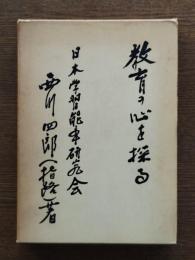 教育の心を探る
日本学習能率研究会
西川四郎(指路)著